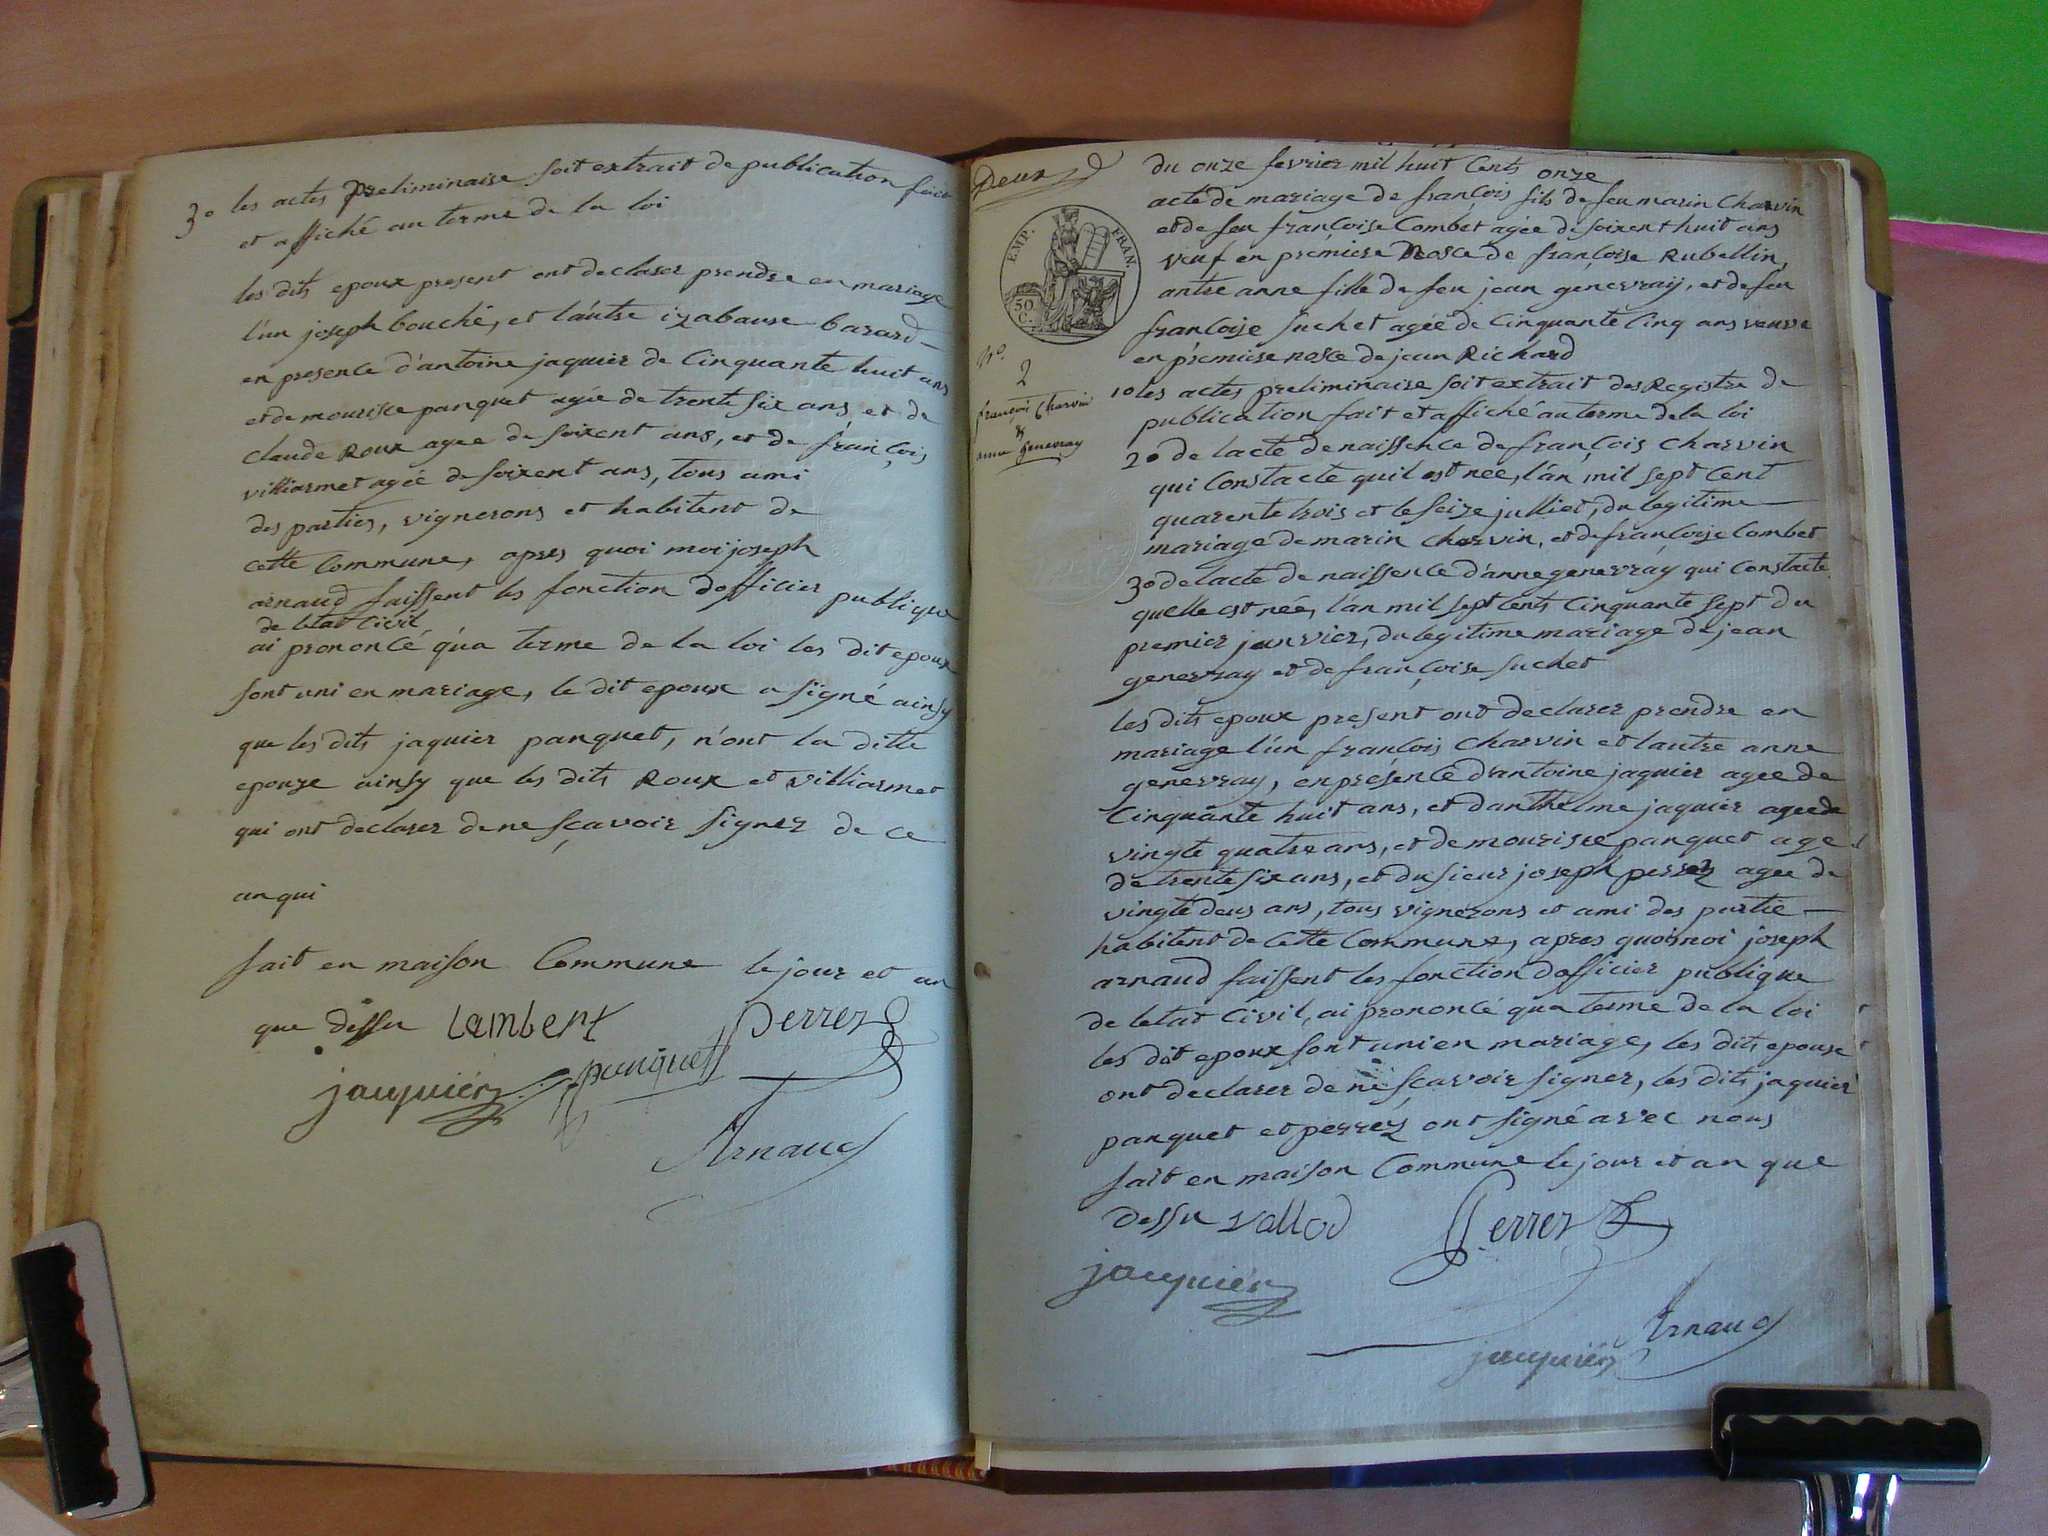 3o les actes preliminaise soit extrait de publication fait
et affiché au terme de la loi
les dits epoux present ont declarer prendre en mariage
l'un joseph bouché, et l'autre izabause bazard
en presence d'antoine jaquier de Cinquante huit ans
et de mourise panquet agée de trente six ans, et de
claude Roux agee de soixent ans, et de françois
villiarmet agée de soixent ans, tous ami
des parties, vignerons et habitent de
cette Commune, apres quoi moi joseph
arnaud faissent les fonction dofficier publique
de letat Civil
ai prononcé qua terme de la loi les dit epoux
sont uni en mariage, le dit epoux a signé ainsy
que les dits jaquier panquet, n'ont la ditte
epouze ainsy que les dits Roux et villiarmet
qui ont declarer de ne sçavoir signer de ce
an qui
fait en maison Commune le jour et an
que dessu Lambert Perrez
jacquiér panquet
Arnaud
Deux
EMP. FRAN.
50 C.
No.
2
françois Charvin
&
anne genevray
du onze fevrier mil huit Cents onze
acte de mariage de françois fils de feu marin Charvin
et de feu françoise Combet agée de soixent huit ans
veuf en premiere Nosce de françoise Rubellin,
autre anne fille de feu jean genevraÿ, et de feu
françoise suchet agée de Cinquante Cinq ans veuve
en premiere nosce de jean Richard
1o les actes preliminaise soit extrait des Registre de
publication fait et affiché au terme de la loi
2o de lacte de naissence de françois Charvin
qui Constacte quil est née, l'an mil sept Cent
quarente trois et le seize julliet, du legitime
mariage de marin Charvin, et de françoise Combet
3o de lacte de naissence d'anne genevray qui Constacte
quelle est née, l'an mil sept Cents Cinquante sept du
premier janvier, du legitime mariage de jean
genevray et de françoise suchet
les dits epoux present ont declarer prendre en
mariage l'un françois Charvin et lautre anne
genevray, en présence d'antoine jaquier agee de
Cinquante huit ans, et danthelme jaquier agee de
vingte quatre ans, et de mourisce panquet age
de trente six ans, et du sieur joseph perrez agee de
vingte deus ans, tous vignerons et ami des partie
habitent de Cette Commune, apres quoi moi joseph
arnaud faissent les fonction dofficier publique
de letat Civil, ai prononcé qua terme de la loi
les dit epoux sont uni en mariage, les dits epouse
ont declarer de ne scavoir signer, les dits jaquier
panquet et perréz ont signé avec nous
fait en maison Commune le jour et an que
dessu vallod Perrez
jacquiér
Arnaud
jacquiér